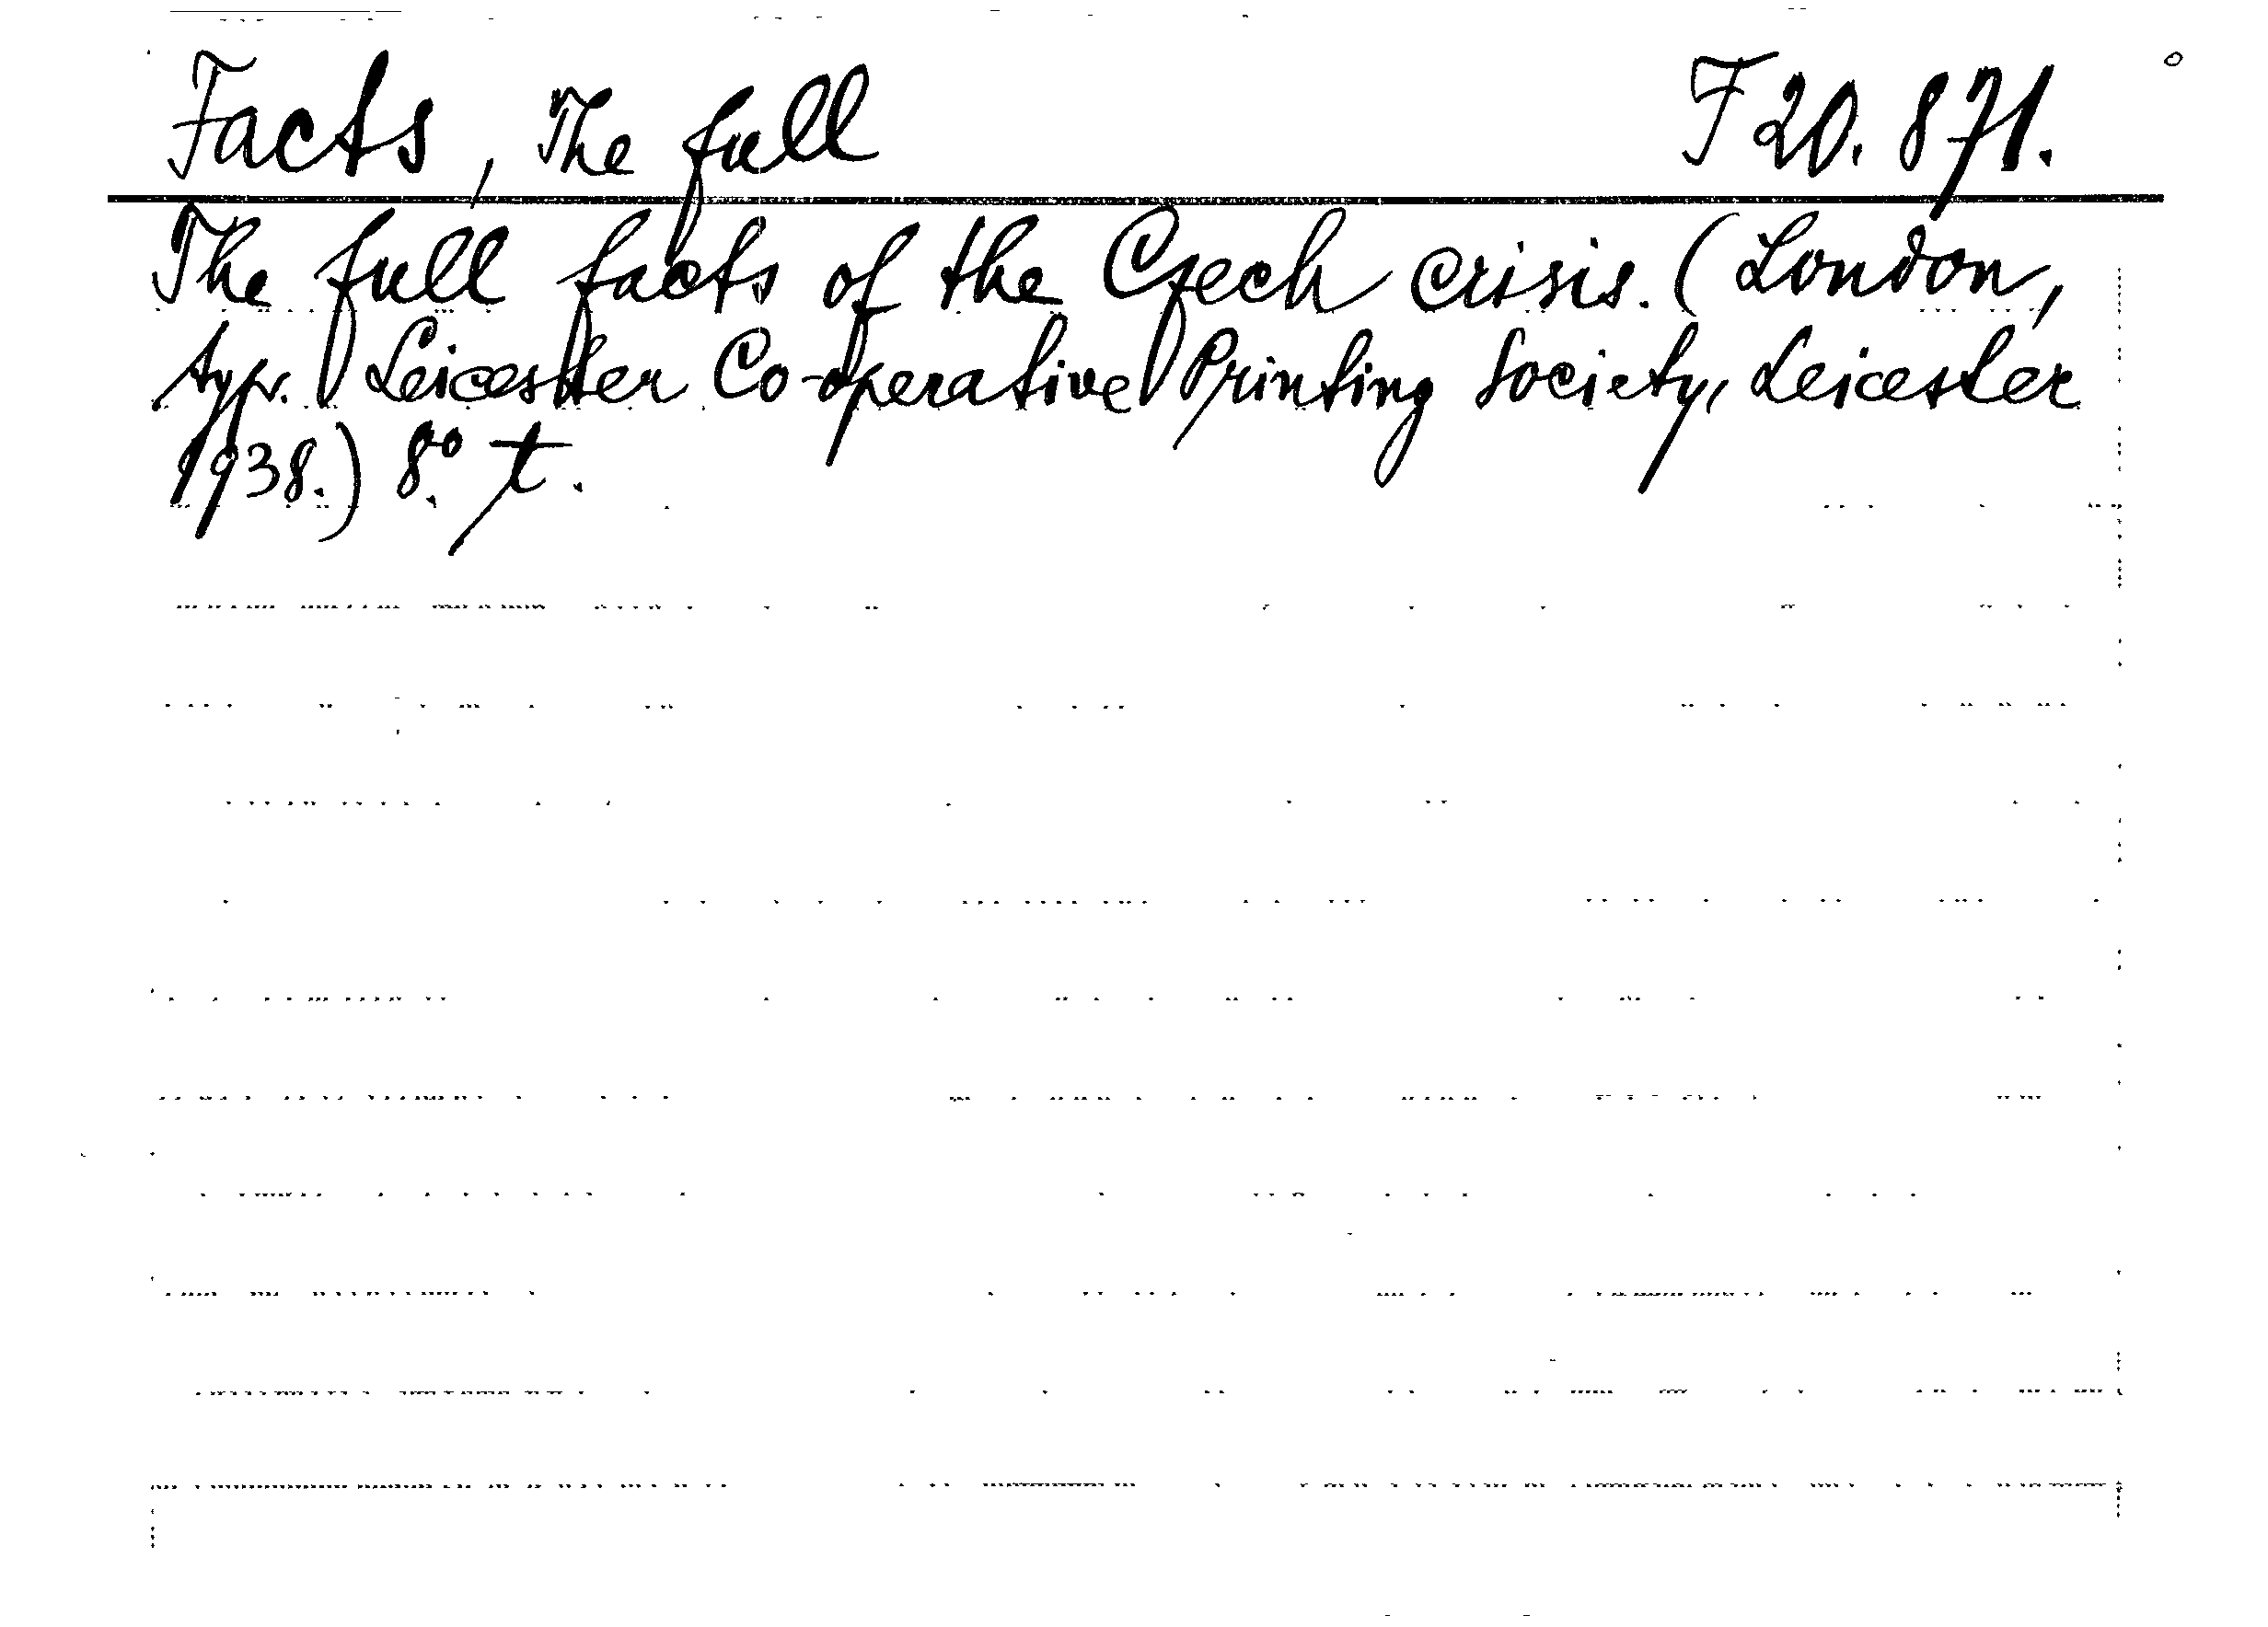 Facts, The full F 20.871.
The full facts of the Czech crisis. (London,
typ. Leicester Co-operative Printing Society, Leicester
1938.) 8.° t.